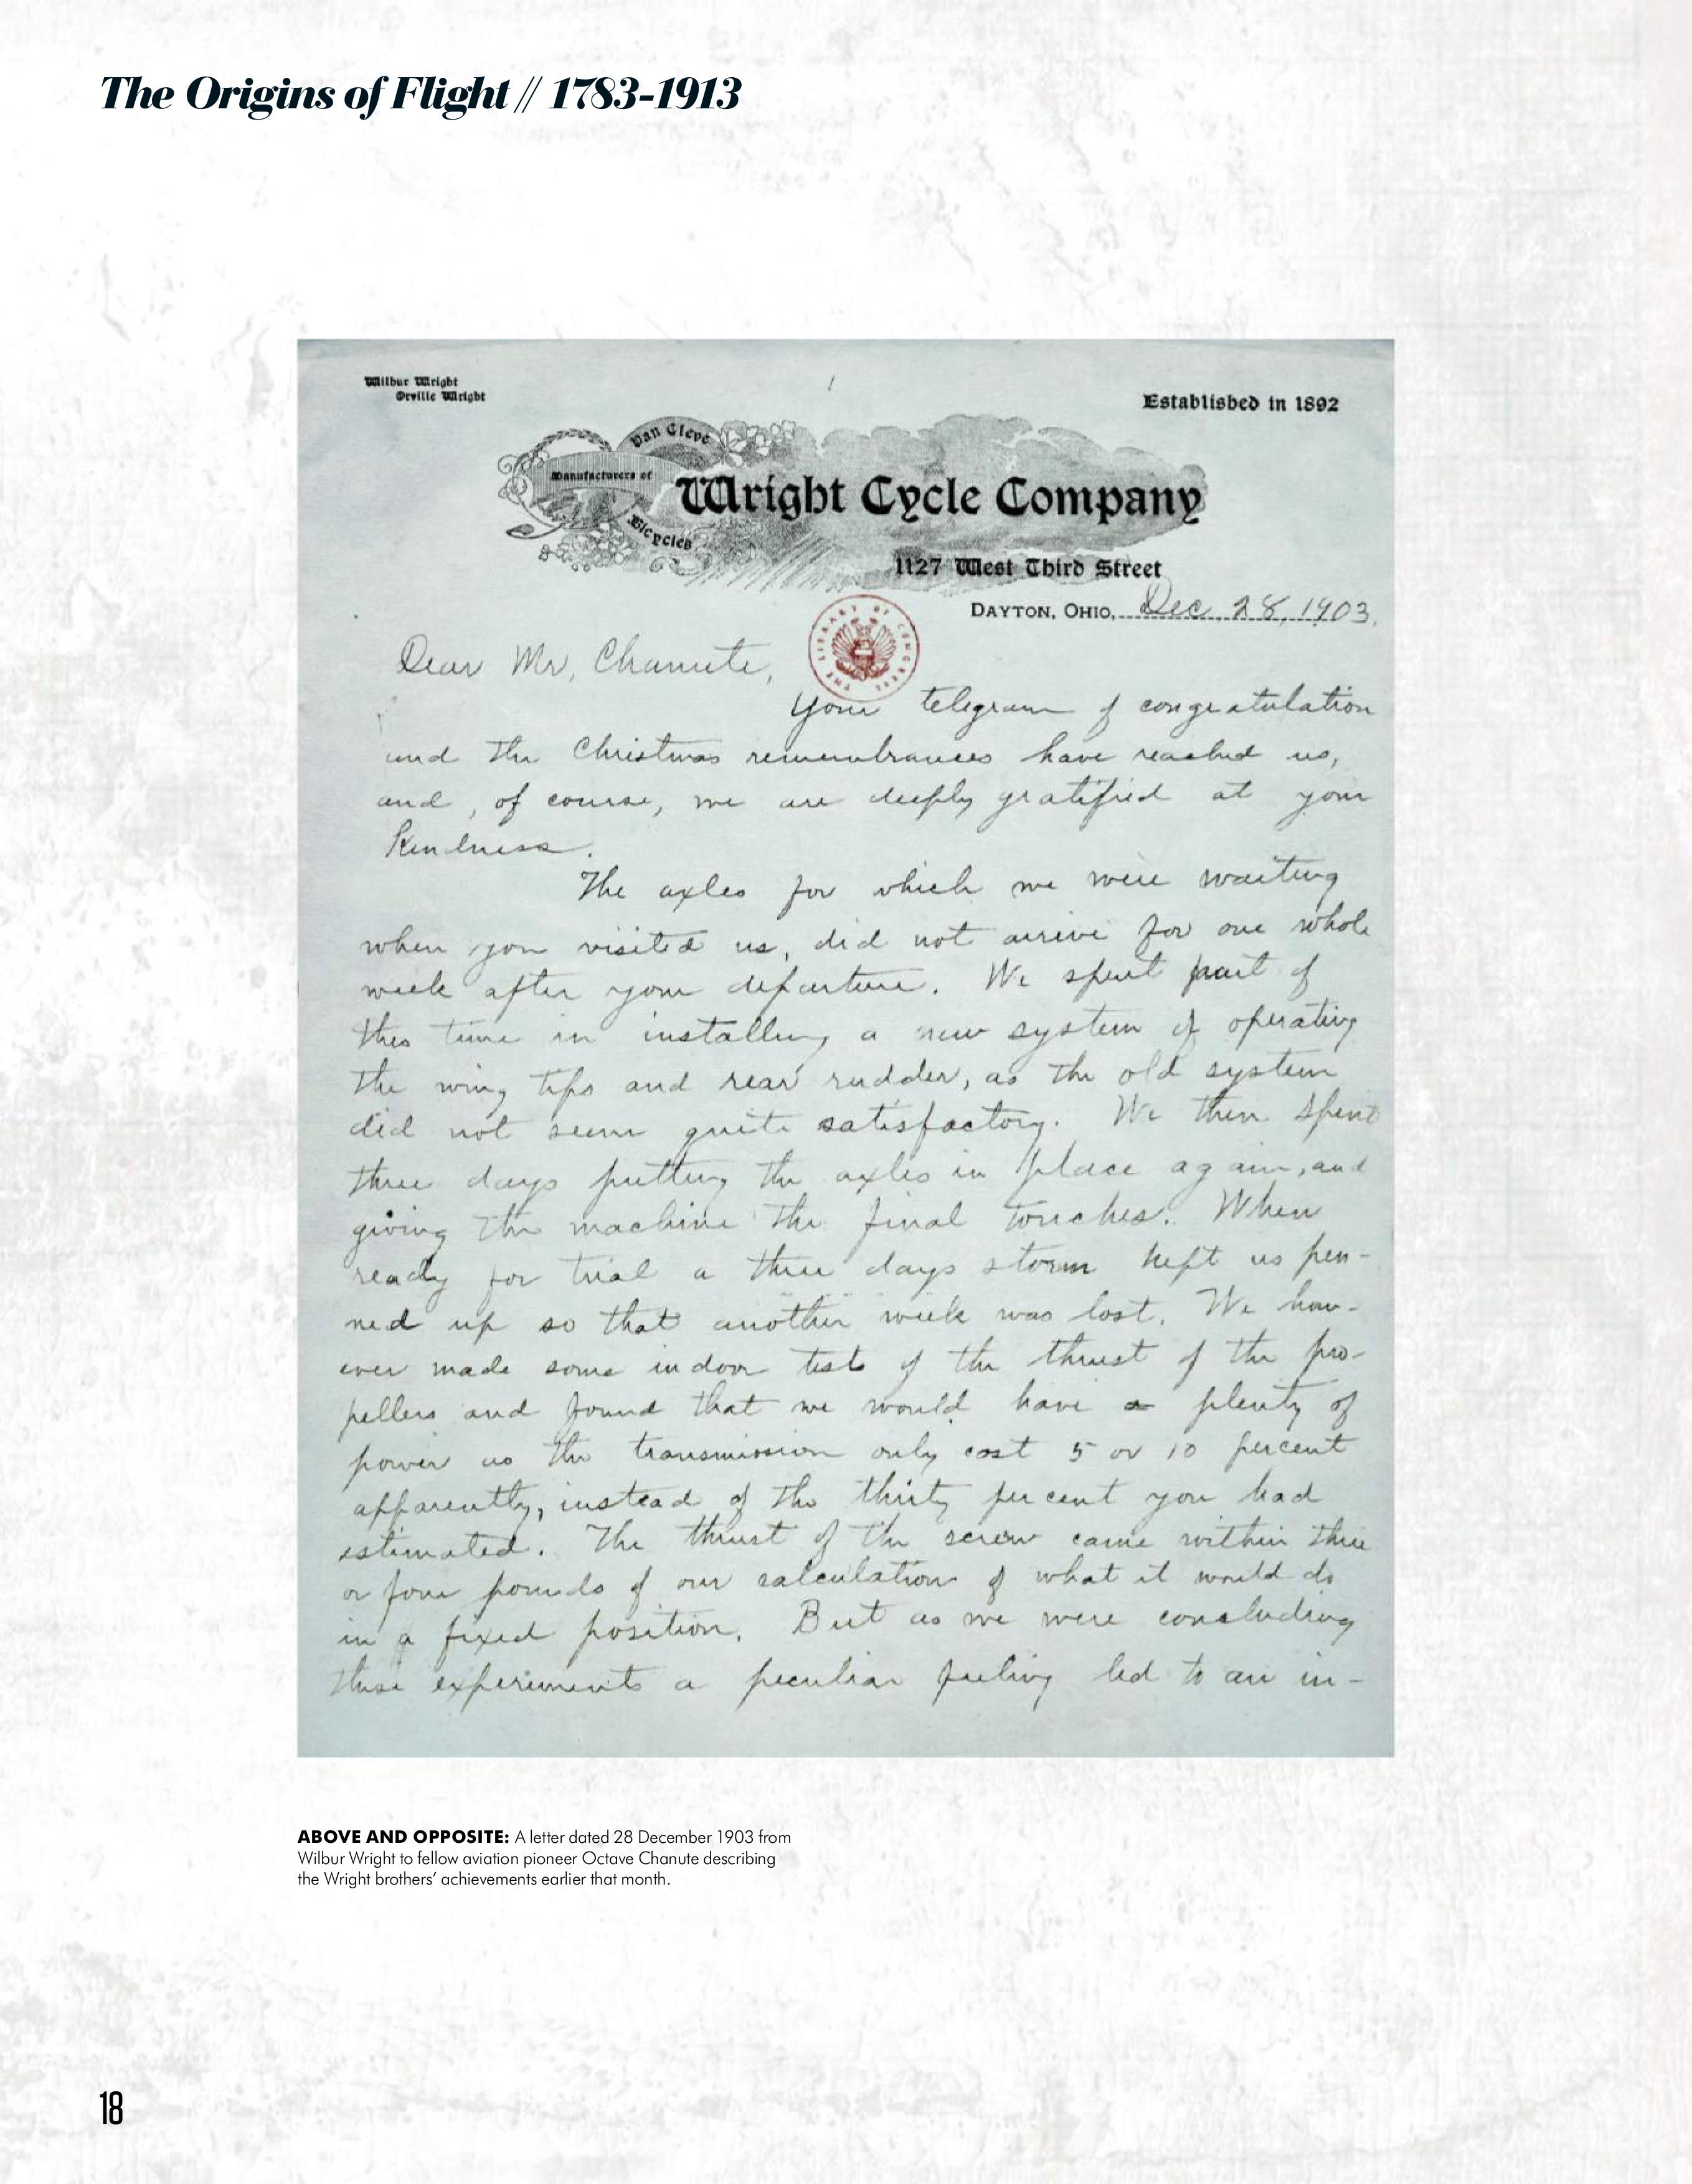 The Origins of Flight // 1783-1913
Wilbur Wright
Orville Wright
Established in 1892
Van Cleve
Manufacturers of
Bicycles
Wright Cycle Company
1127 West Third Street
DAYTON, OHIO, Dec. 28, 1903.
THE LIBRARY OF CONGRESS
Dear Mr. Chanute,
Your telegram of congratulation
and the Christmas remembrances have reached us,
and, of course, we are deeply gratified at your
kindness.
The axles for which we were waiting
when you visited us, did not arrive for one whole
week after your departure. We spent part of
this time in installing a new system of operating
the wing tips and rear rudder, as the old system
did not seem quite satisfactory. We then spent
three days putting the axles in place again, and
giving the machine the final touches. When
ready for trial a three days storm kept us pen-
ned up so that another week was lost. We how-
ever made some indoor test of the thrust of the pro-
pellers and found that we would have a plenty of
power as the transmission only cost 5 or 10 percent
apparently, instead of the thirty per cent you had
estimated. The thrust of the screw came within three
or four pounds of our calculation of what it would do
in a fixed position. But as we were concluding
these experiments a peculiar feeling led to an in-
ABOVE AND OPPOSITE: A letter dated 28 December 1903 from
Wilbur Wright to fellow aviation pioneer Octave Chanute describing
the Wright brothers' achievements earlier that month.
18